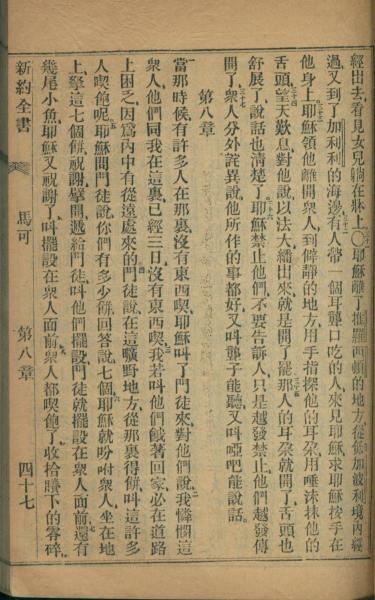 經出去、看見女兒躺在牀上〇耶穌離了推羅西頓的地方、從低加波利境內經
過、又到了加利利的海邊、有人帶一個耳聾口吃的人、來見耶穌、求耶穌按手在
他身上、耶穌領他離開衆人、到僻靜的地方、用手指探他的耳朶、用唾沫抹他的
舌頭、望天歎息、對他說、以法大、繙出來就是開了罷、那人的耳朶就開了、舌頭也
舒展了、說話也清楚了、耶穌禁止他們、不要告訴人、只是越發禁止、他們越發傳
開了、衆人分外詫異、說、他所作的事都好、又叫聾子能聽、又叫啞吧能說話。
第八章
當那時候、有許多人在那裏、沒有東西喫、耶穌叫了門徒來、對他們說、我憐憫這
衆人、他們同我在這裏已經三日、沒有東西喫、我若叫他們餓著回家、必在道路
上困乏、因爲內中有從遠處來的、門徒說、在這曠野地方、從那裏得餅、叫這許多
人喫飽呢、耶穌問門徒說、你們有多少餅、回答說、七個、耶穌就吩咐衆人、坐在地
上、拏這七個餅、祝謝、擘開、遞給門徒、叫他們擺設、門徒就擺設在衆人面前、還有
幾尾小魚、耶穌又祝謝了、叫擺設在衆人面前、衆人都喫飽了、收拾賸下的零碎、
新約全書 馬可 第八章 四十七